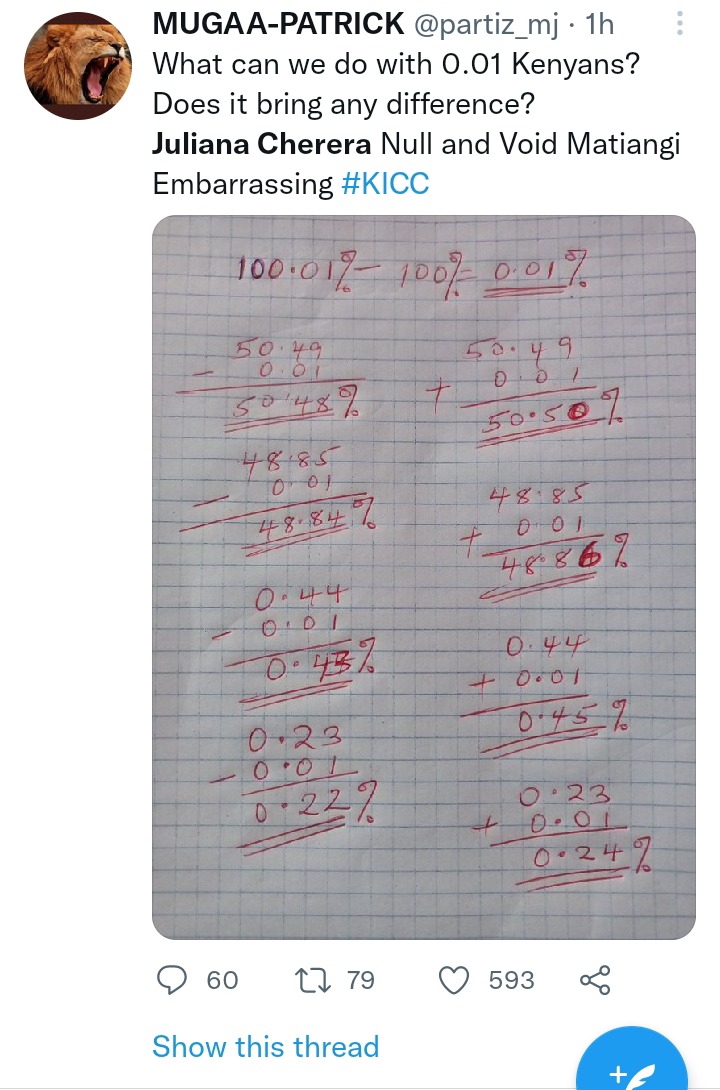 MUGAA-PATRICK @partiz_mj · 1h
What can we do with 0.01 Kenyans?
Does it bring any difference?
Juliana Cherera Null and Void Matiangi
Embarrassing #KICC
100.01% - 100% = 0.01%
50.49
- 0.01
50.48%
48.85
- 0.01
48.84%
0.44
- 0.01
0.43%
0.23
- 0.01
0.22%
50.49
+ 0.01
50.50%
48.85
+ 0.01
48.86%
0.44
+ 0.01
0.45%
0.23
+ 0.01
0.24%
60 79 593
Show this thread